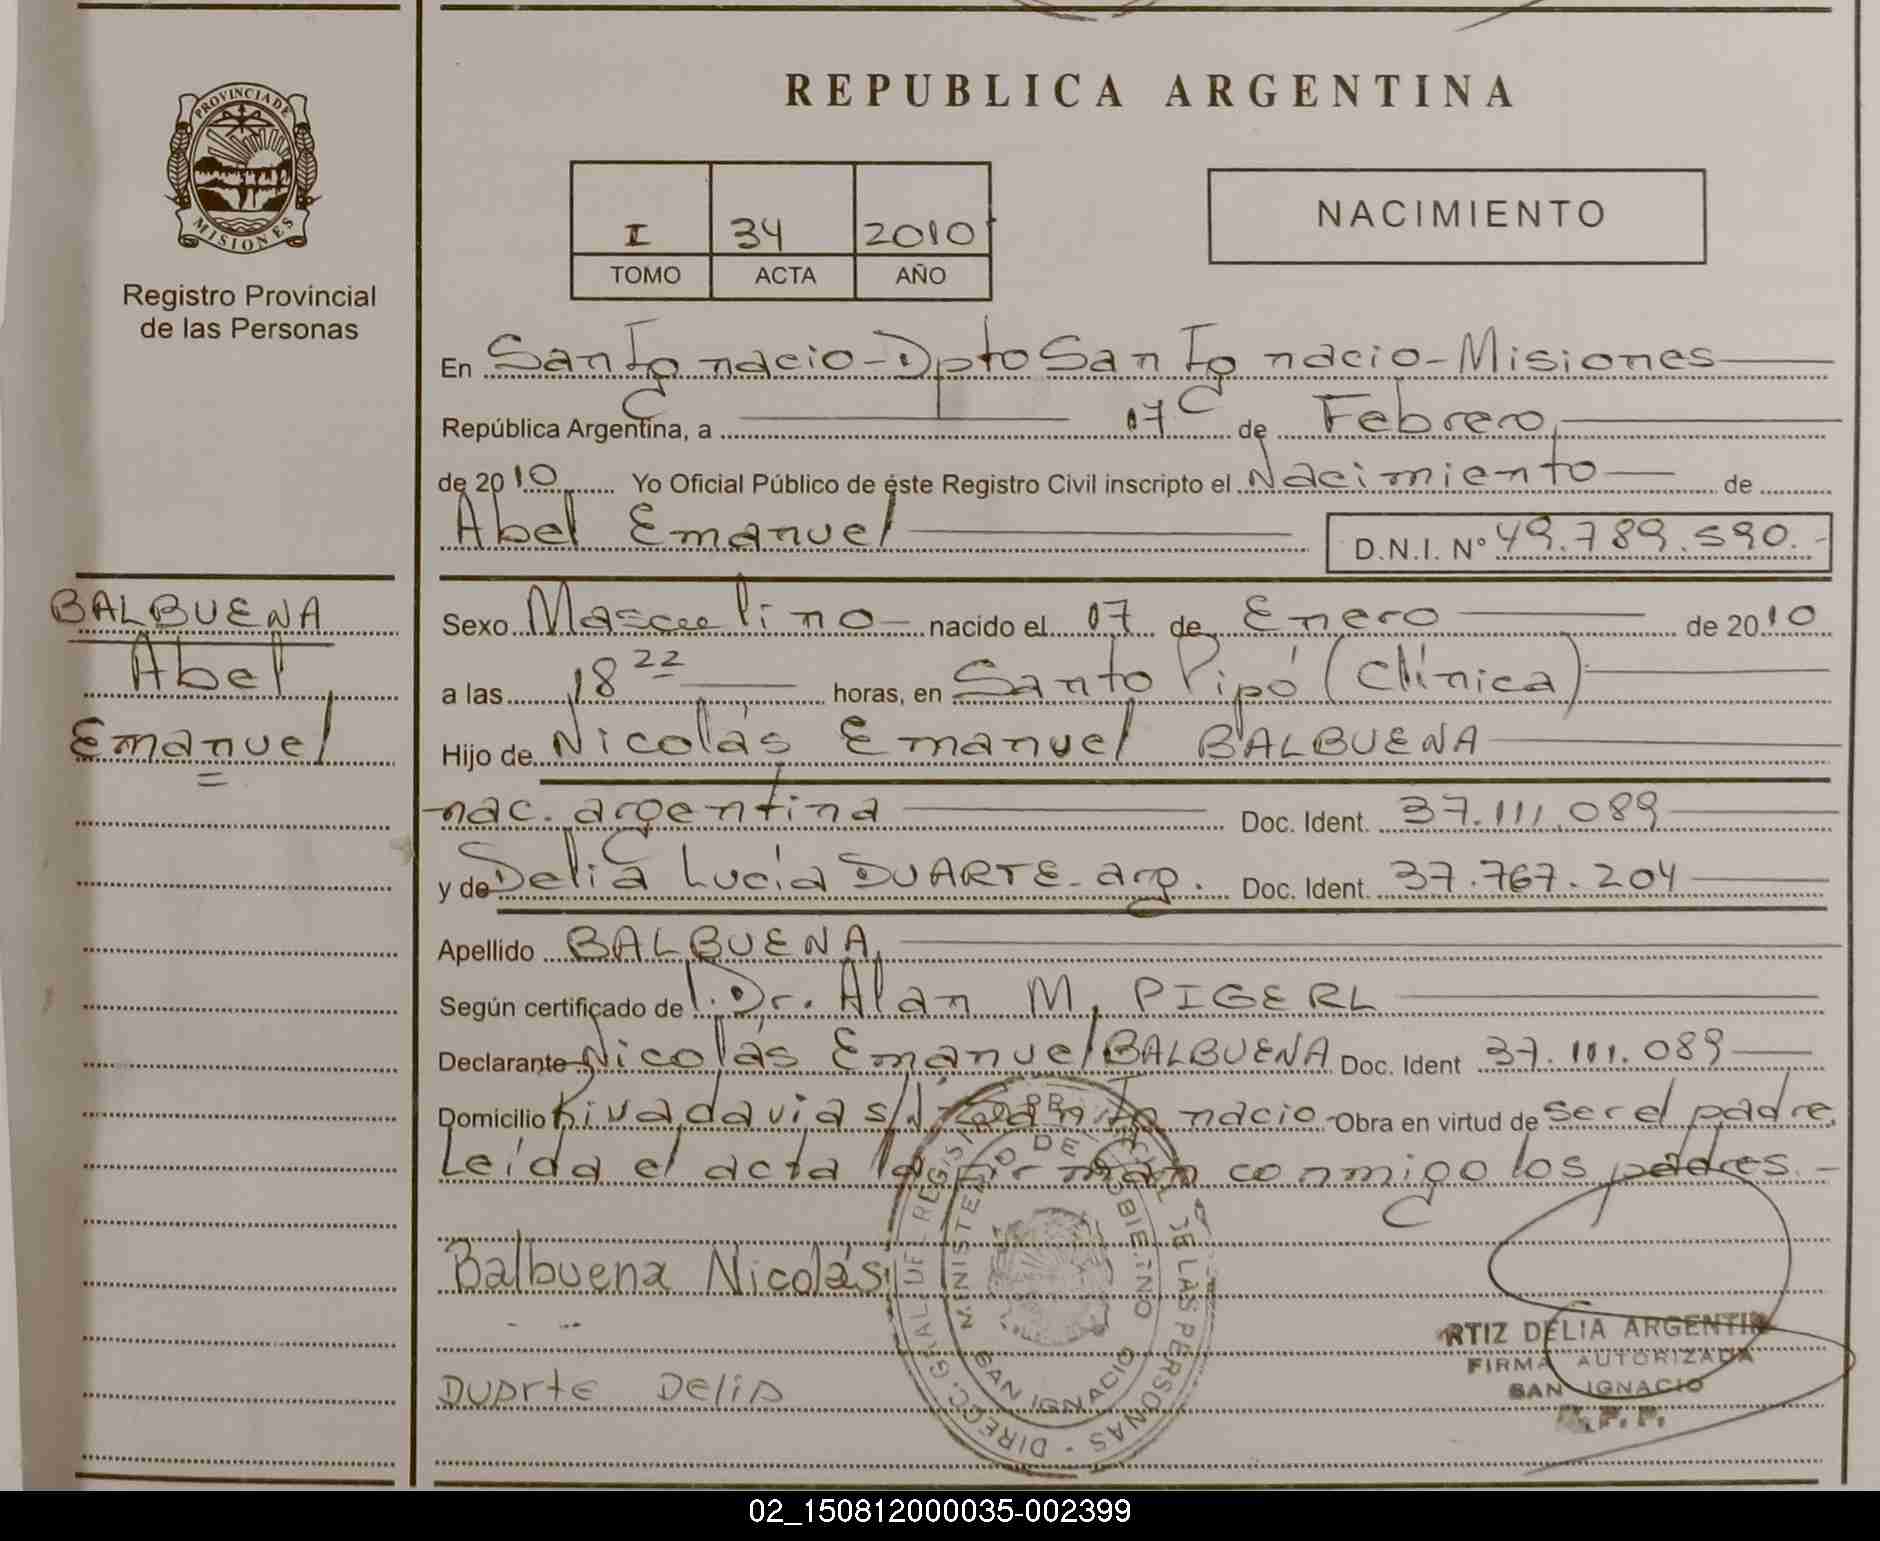 REPUBLICA ARGENTINA
PROVINCIA DE
MISIONES
Registro Provincial
de las Personas
I 34 2010
TOMO ACTA AÑO
NACIMIENTO
En San Ignacio - Dpto San Ignacio - Misiones
República Argentina, a 07 de Febrero
de 2010 Yo Oficial Público de éste Registro Civil inscripto el Nacimiento de
Abel Emanuel D.N.I. Nº 49.789.590.-
BALBUENA
Abel
Emanuel
Sexo Masculino nacido el 07 de Enero de 2010
a las 18 22 horas, en Santo Pipó (Clínica)
Hijo de Nicolás Emanuel BALBUENA
nac. argentina Doc. Ident. 37.111.089
y de Delia Lucía DUARTE - arg. Doc. Ident. 37.767.204
Apellido BALBUENA
Según certificado de Dr. Alan M. PIGERL
Declarante Nicolás Emanuel BALBUENA Doc. Ident 37.111.089
Domicilio Rivadavia s/n - San Ignacio - Obra en virtud de ser el padre.
Leída el acta la firman conmigo los padres.-
Balbuena Nicolás
Duarte Delia
DIRECC. GRAL DEL REGISTRO PROVINCIAL DE LAS PERSONAS
MINISTERIO DE GOBIERNO
SAN IGNACIO
RTIZ DELIA ARGENTIN
FIRMA AUTORIZADA
SAN IGNACIO
R. P. P.
02_150812000035-002399